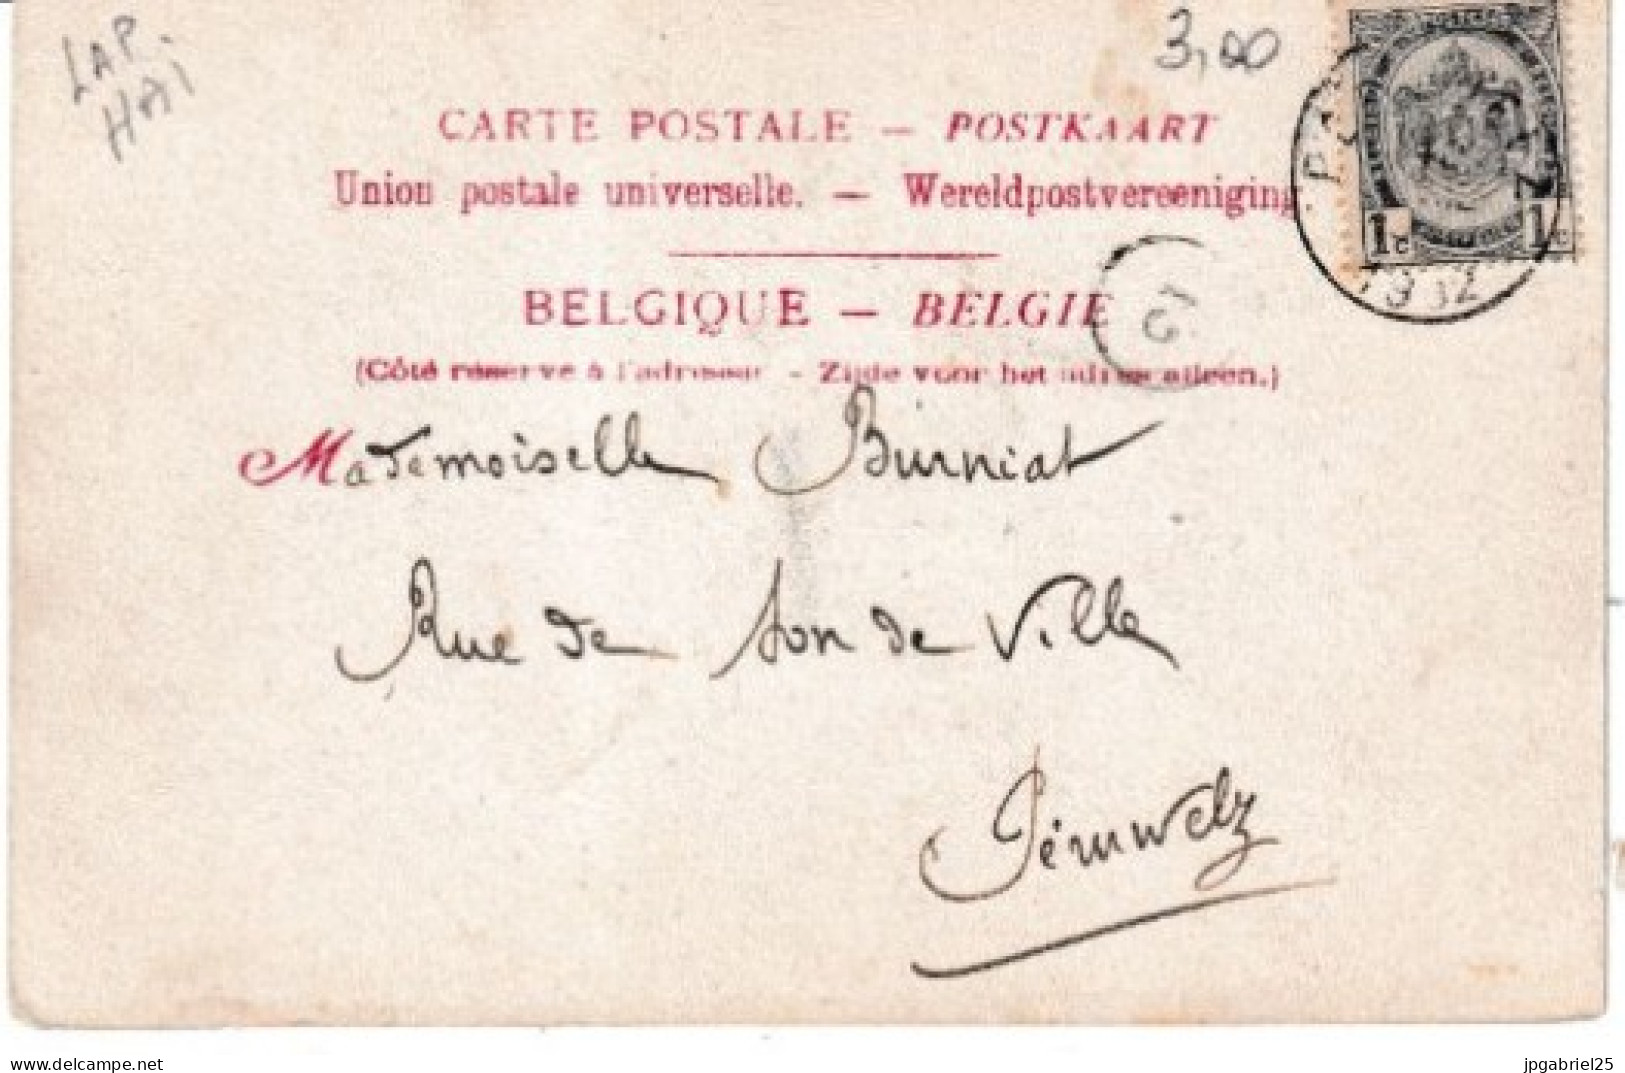 LAP.
HAI
3,00
CARTE POSTALE — POSTKAART
Union postale universelle. — Wereldpostvereeniging
BELGIQUE — BELGIE
(Côté réservé à l'adresse. - Zijde voor het adres alleen.)
1c 1c
Mademoiselle Burniat
Rue de son de Ville
Péruwelz
delcampe.net
jpgabriel25